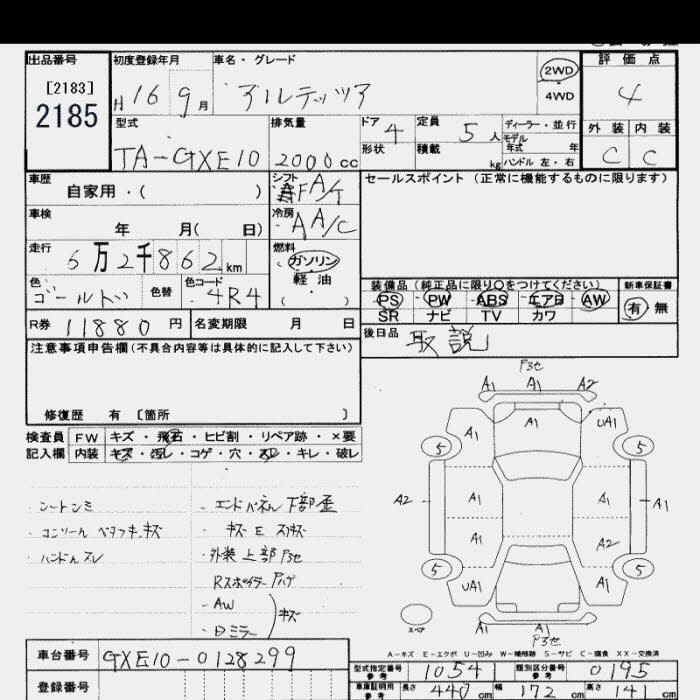 出品番号 初度登録年月 車名・グレード 2WD 評価点
[2183] 4WD
2185 H 16 9月 アルテッツァ 4
型式 排気量 ドア 4 定員 5人 ディーラー・並行 外装 内装
形状 積載 kg モデル年式 年
TA-GXE10 2000cc ハンドル 左・右 C C
車歴 シフト FA/T セールスポイント(正常に機能するものに限ります)
自家用・( )
車検 冷房 AA/C
年 月( 日)
走行 燃料
6万2千862km ガソリン
軽油
( )
色 色替 色コード 装備品(純正品に限り○をつけてください) 新車保証書
ゴールド 4R4 PS PW ABS エアB AW 有 無
SR ナビ TV カワ
R券 11880円 名変期限 月 日 後日品 取説
注意事項申告欄(不具合内容等は具体的に記入して下さい)
修復歴 有 [箇所 ]
検査員 FW キズ・飛石・ヒビ割・リペア跡・×要
記入欄 内装 キズ・汚レ・コゲ・穴・スレ・キレ・破レ
シートシミ
・コンソール ベタツキ、キズ
・ハンドルスレ
・エンドパネル下部歪
キズE スリキズ
・外装上部アセ
Rスポイラーハゲ
・AW
・Dミラー
キズ
アセ
A1 A1 A2
A1 A1 UA1
5 5
A2 A1 A1 A1
A1 A2
5 5
UA1 A1
スペア
A1 A1
アセ
A-キズ E-エクボ U-凹み W-補修跡 S-サビ C-腐食 XX-交換済
車台番号 GXE10-0128299
型式指定番号 参考 1054 類別区分番号 参考 0195
登録番号 車庫証明用 参考 長さ 440cm 幅 172cm 高さ 141cm